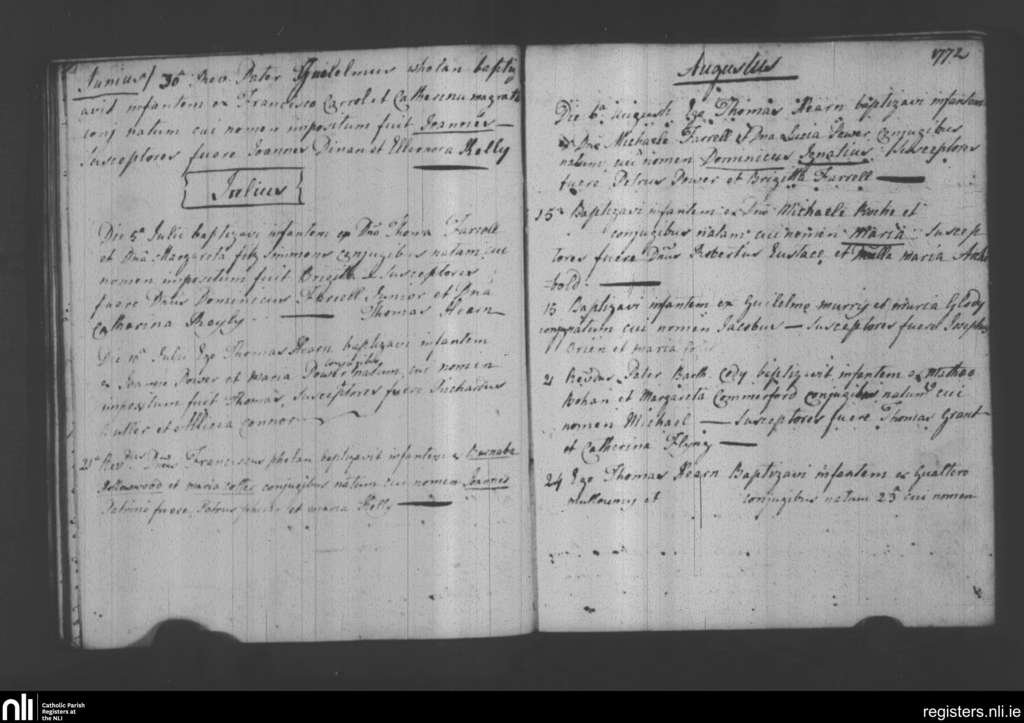 Junius / 30 Rev. Pater Guilelmus whelan baptiz
avit infantem ex Francisco Carrol et Catherina magrath
conj natum cui nomen impositum fuit Joannes —
Susceptores fuere Joannes Dinan et Elleonora Kelly
Julius
Die 5a Julii baptizavi infantem ex Dno Thoma Farrell
et Dna Margareta fitz simmons conjugibus natam cui
nomen impositum fuit Brigitta Susceptores
fuere Dnus Dominicus Farrell Junior et Dna
Catherina Reyly — Thomas Hearn
Die Julii Ego Thomas Hearn baptizavi infantem
ex Joanne Power et maria Power conjugibus natum cui nomen
impositum fuit Thomas, Susceptores fuere Richardus
Butler et Alicia Connor
21a Revdus Dnus Franciscus phelan baptizavit infantem ex Barnaba
et maria conjugibus natum cui nomen Joannes
Patrini fuere Petrus et maria Kelly —
1772
Augustus
Die 6a Augusti Ego Thomas Hearn baptizavi infantem
ex Dno Michaele Farrell et Dna Lucia Power Conjugibus
natum cui nomen Dominicus Ignatius. Susceptores
fuere Petrus Power et Brigitta Farrell —
15a Baptizavi infantem ex Dno Michaele et
conjugibus natam cui nomen Maria Suscep
tores fuere Dnus Robertus Eustace et maria Arch
bold —
15 Baptizavi infantem ex Guilelmo murry et maria
conj natum cui nomen Jacobus — Susceptores fuere Josephus
Brien et maria
21 Revdus Pater Barth. Cody baptizavit infantem ex Mathao
Bohan et Margareta Commerford conjugibus natum cui
nomen Michael — Susceptores fuere Thomas Grant
et Catherina Flyng —
24 Ego Thomas Hearn Baptizavi infantem ex Gualtero
mullowney et conjugibus natum 23a cui nomen
nli Catholic Parish
Registers at
the NLI
registers.nli.ie